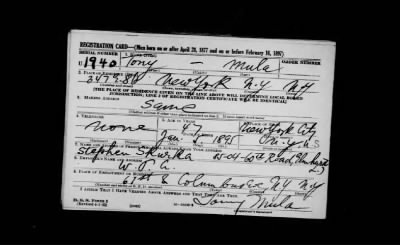 REGISTRATION CARD—(Men born on or after April 28, 1877 and on or before February 16, 1897)
SERIAL NUMBER 1. NAME (Print) ORDER NUMBER
U 1940 Tony — Mula
2. PLACE OF RESIDENCE (Print)
2479 New York N.Y. N.Y.
[THE PLACE OF RESIDENCE GIVEN ON THE LINE ABOVE WILL DETERMINE LOCAL BOARD
JURISDICTION; LINE 2 OF REGISTRATION CERTIFICATE WILL BE IDENTICAL]
3. MAILING ADDRESS
Same
4. TELEPHONE 5. AGE IN YEARS 6. PLACE OF BIRTH
None 47 New York City
Jan. 1895 N.Y. U.S
7. NAME AND ADDRESS OF PERSON WHO WILL ALWAYS KNOW YOUR ADDRESS
Stephen
8. EMPLOYER'S NAME AND ADDRESS
9. PLACE OF EMPLOYMENT OR BUSINESS
61st & Columbus NY NY
I AFFIRM THAT I HAVE VERIFIED ABOVE ANSWERS AND THAT THEY ARE TRUE.
Tony Mula